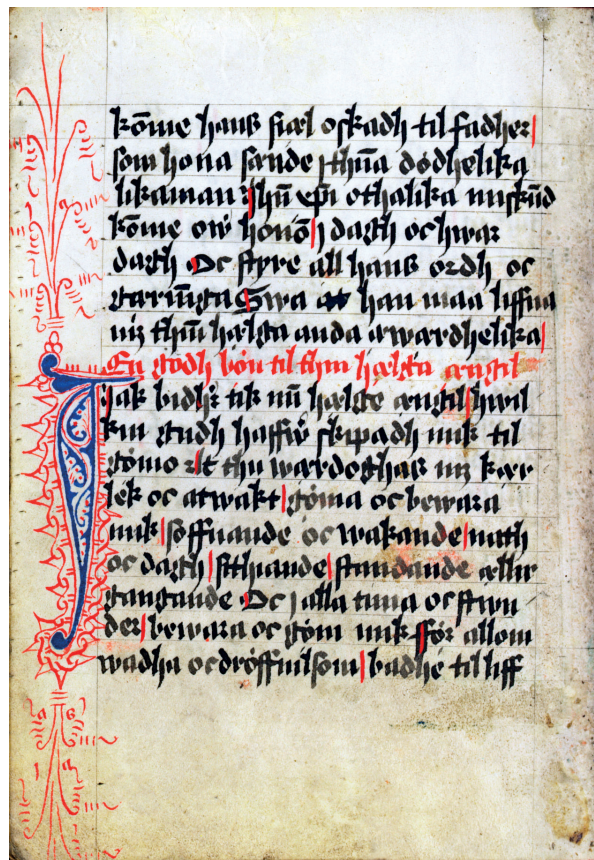 kōme hans siæl oskadh til fadher
som hona sænde j thn̄a dødhelika
likaman jhū xp̄i othalika miskūd
kōme ow honō j dagh oc hwar
dagh Oc styre all hans ordh oc
gærnīga Swa at han maa liffua
mz thn̄ hælga anda æwardhelika
En godh bøn til thin hælga ængil
Jak bidhr tik mī hælge ængil hwil
kin gudh haffir skipadh mik til
gømo at thu wardoghas mz kær
lek oc atwakt gøma oc bewara
mik soffuande oc wakande nath
oc dagh sithiande standande ællir
gangande Oc j alla tima oc stwn
der bewara oc gøm mik før allom
wadha oc drøffuilsom badhe til liff